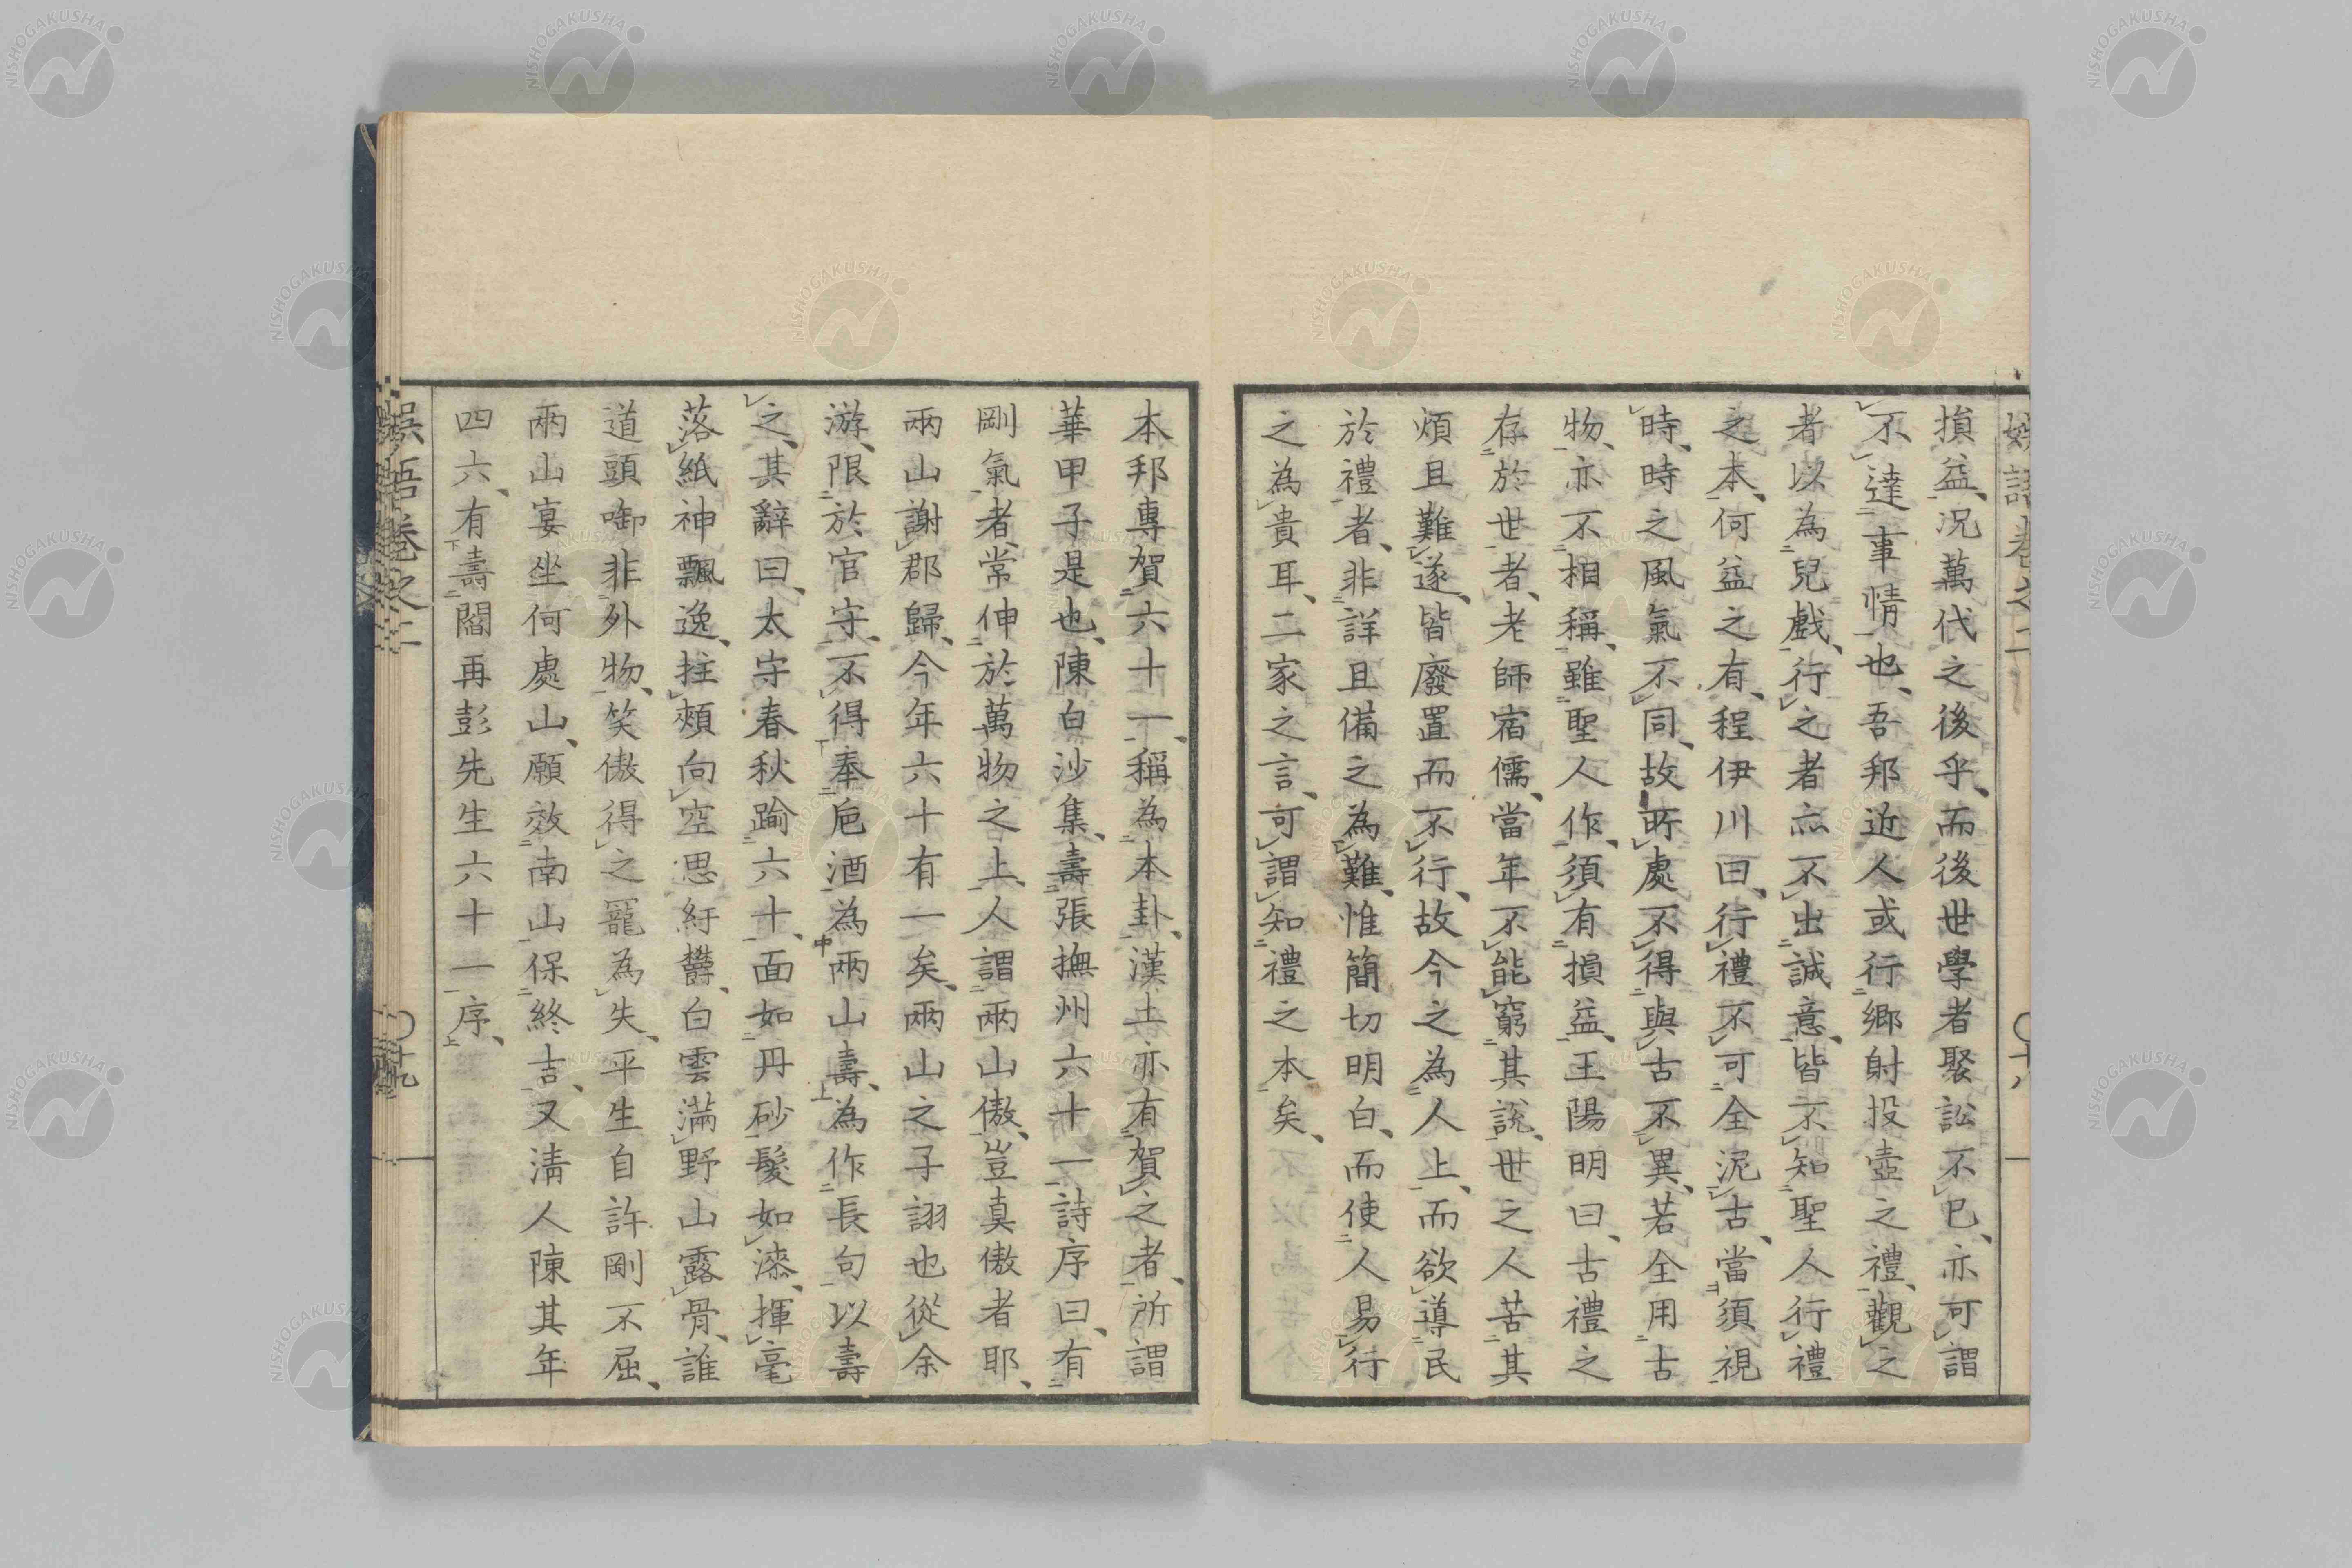 損益、况萬代之後乎、而後世學者聚訟不已、亦可謂
不達事情也、吾邦近人或行鄉射投壺之禮、觀之
者以為兒戲、行之者亦不出誠意、皆不知聖人行禮
之本、何益之有、程伊川曰、行禮不可全泥古、當須視
時、時之風氣不同、故所處不得與古不異、若全用古
物、亦不相稱、雖聖人作、須有損益、王陽明曰、古禮之
存於世者、老師宿儒、當年不能窮其說、世之人苦其
煩且難、遂皆廢置而不行、故今之為人上、而欲導民
於禮者、非詳且備之為難、惟簡切明白、而使人易行
之為貴耳、二家之言、可謂知禮之本矣、
本邦專賀六十一、稱為本卦、漢土亦有賀之者、所謂
華甲子是也、陳白沙集、壽張撫州六十一詩序曰、有
剛氣者、常伸於萬物之上、人謂兩山傲、豈真傲者耶、
兩山謝郡歸、今年六十有一矣、兩山之子詡也從余
游、限於官守、不得奉卮酒為兩山壽、為作長句以壽
之、其辭曰、太守春秋踰六十、面如丹砂髮如漆、揮毫
落紙神飄逸、拄頰向空思紆欝、白雲滿野山露骨、誰
道頭啣非外物、笑傲得之寵為失、平生自許剛不屈、
兩山宴坐何處山、願效南山保終吉、又淸人陳其年
四六、有壽閻再彭先生六十一序、
娛語卷之二
〇十八
娛語卷之二
〇十九
NISHOGAKUSHA